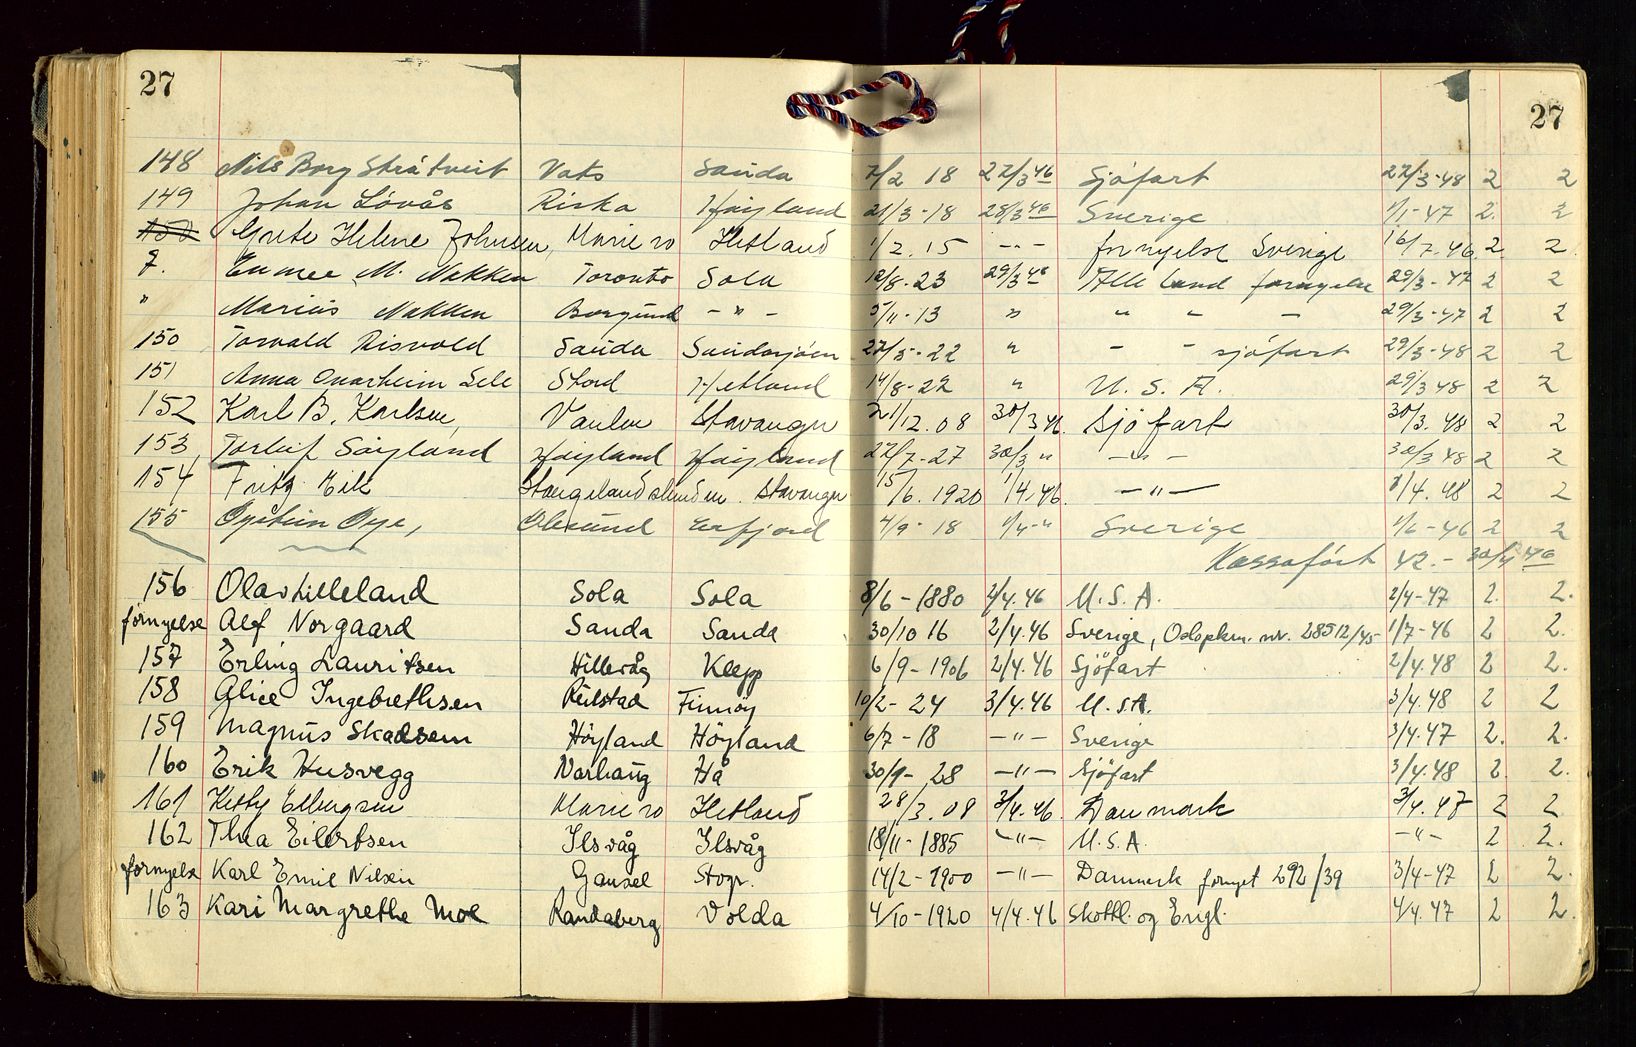 27 27
148 Nils Borg Stråtveit Vats Sauda 7/2 18 27/3 46 Sjøfart 27/3-48 2 2
149 Johan Løvås Riska Høyland 21/3-18 28/3 46 Sverige 1/1-47 2. 2
150 Grete Helene Johnsen, Mariero Hetland 1/2.15 -"- fornyelse Sverige 16/7.46 2. 2.
f. M. Nakken Toronto Sola 12/8-23 29/3 46 Alle land fornyelse 29/3-47 2 2
" Marius Nakken Borgund -"- 5/11-13 " " - - 29/3-47 2 2
150 Torvald Risvold Sauda Saudasjøen 27/5-22 " - - sjøfart 29/3-48 2 2
151 Anna Onarheim Lele Stord Hetland 14/8-22 " U.S.A. 29/3 48 2 2
152 Karl B. Karlsen, Vaulen Stavanger 21/12.08 30/3 46. Sjøfart 30/3.48 2 2
153 Torleif Søyland Høyland Høyland 27/7-27 30/3 " -"- 30/3 48 2 2
154 Fritz Eik Stangelandslunden. Stavanger 15/6.1920 1/4.46. -"- 1/4.48 2 2
155 Øystein Øye, Ålesund Erfjord 4/9-18 1/4-" Sverige 1/6-46 2 2
Kassaført 42.- 30/4 46
156 Olav Lilleland Sola Sola 8/6-1880 2/4.46 U.S.A. 2/4-47 2. 2.
fornyelse Alf Norgaard Sanda Sanda 30/10 16 2/4.46 Sverige, Oslopkm. nr. 28512/45 1/7-46 2 2.
157 Erling Lauritsen Hillevåg Klepp 6/9-1906 2/4.46 Sjøfart 2/4.48 2 2.
158 Alice Ingebrethsen Reilstad Finnøy 10/2-24 3/4.46 U.S.A. 3/4.48 2 2
159 Magnus Skadsem Høyland Høyland 6/7-18 -"- Sverige 3/4.47 2. 2.
160 Erik Husvegg Varhaug Hå 30/9-28 -"- Sjøfart 3/4.48 2. 2.
161 Kitty Ellingsen Mariero Hetland 28/3.08 3/4.46. Danmark 3/4.47 2 2
162 Thea Eilertsen Ilsvåg Ilsvåg 18/11-1885 -"- U.S.A. -"- 2 2.
fornyelse Karl Emil Nilsen Gausel Stvgr. 14/2-1900 -"- Danmark fornyet 292/39 3/4-47 2 2.
163 Kari Margrethe Moe Randaberg Volda 4/10-1920 4/4.46 Skottl. og Engl. 4/4.47 2 2.